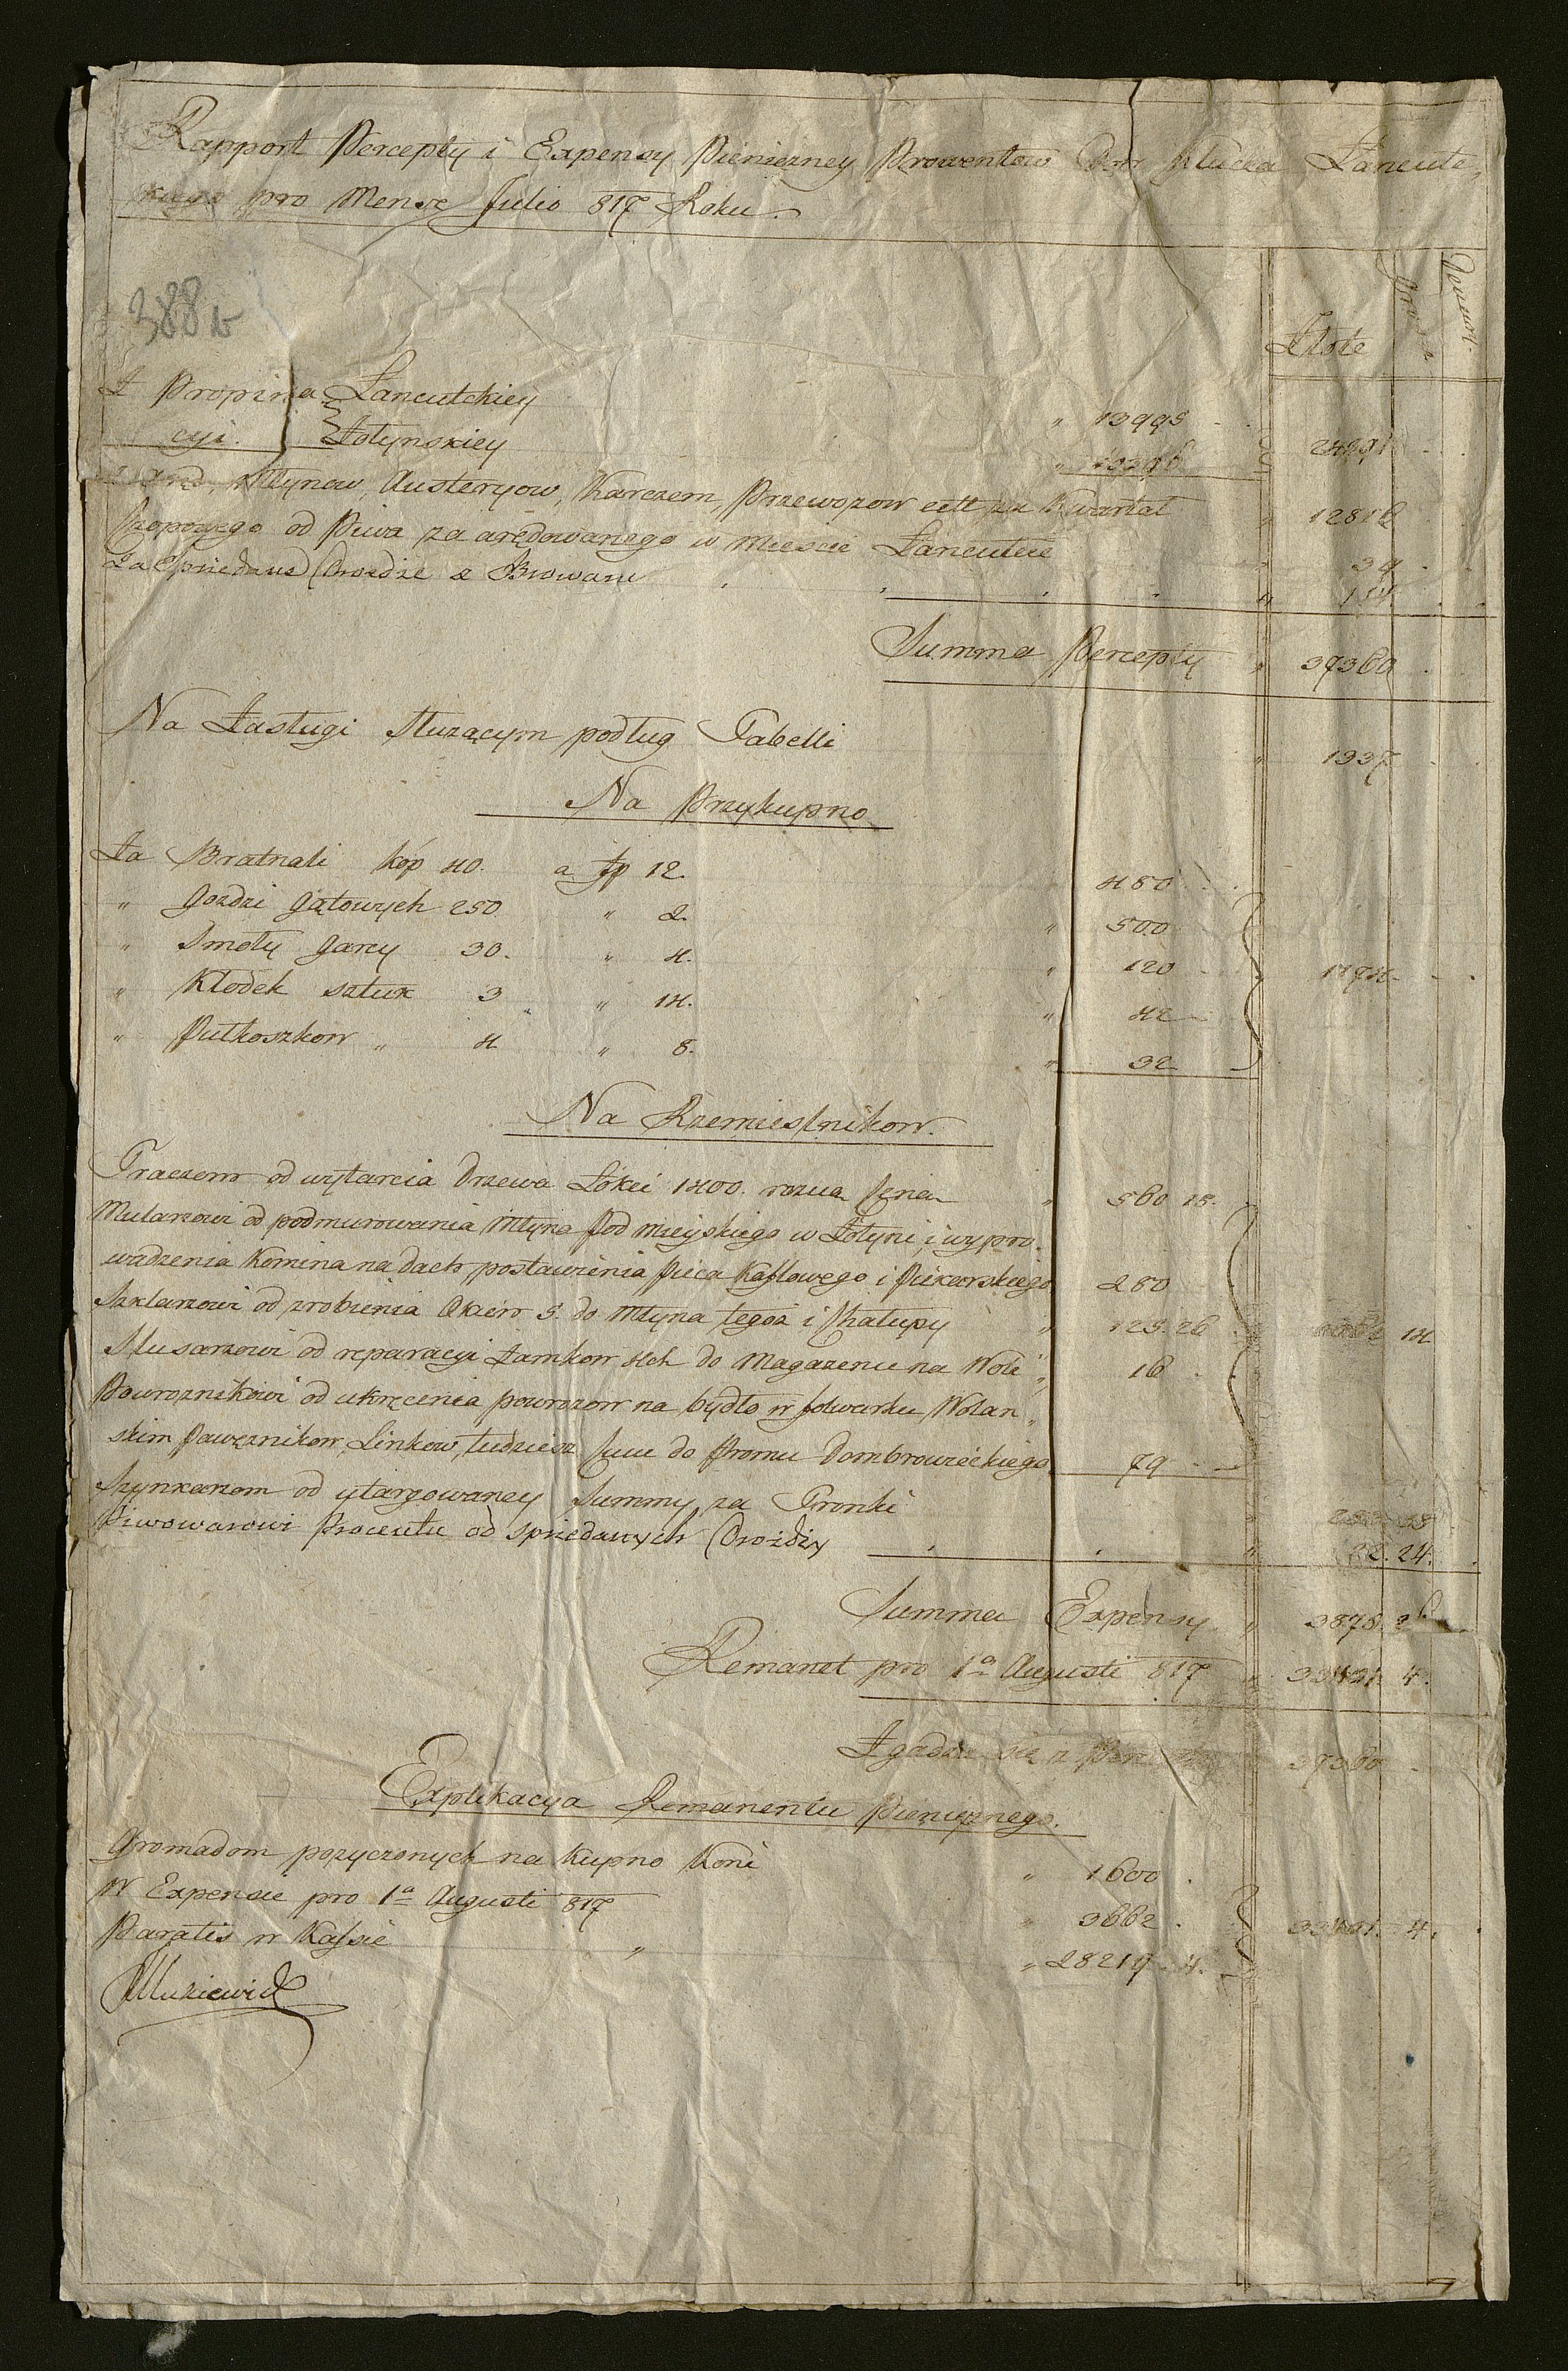 Rapport Percepty i Expensy Pienięzney Prowentow Dobr Klucza Łancutc-
kiego pro Mense Julio 817 Roku.
388 b
Złote
Grosze
Denary
Z Propina- Łancutckiey " 13995
cyi. Żołynskiey " 10296 24291
Młynow, Austeryow, Karczem, Przewozow cett za Kwartał " 1281
Czopowego od Piwa za arędowanego w Miescie Łancucie " 39
Za Sprzedane Drozdze z Browaru " 114
Summa Percepty " 37360
Na Zasługi Słuzącym podług Tabelli " 1337
Na Przykupno
Za Bratnali kóp 40. a fp 12. 480
" Gozdzi Gątowych 250 " 2. " 500
" Smoły Garcy 30. " 4. " 120 " 1174
" Kłodek sztuk 3 " 14. " 42
" Pułkoszkow " 4 " 8. " 32
Na Rzemieslnikow.
Traczom od wytarcia Drzewa Łokci 1400. rozna Cena " 560 15.
Mularzowi od podmurowania Młyna pod Mieyskiego w Żołyni, i wypro-
wadzenia Komina na dach, postawienia pieca Kaflowego i Piekarskiego 280
Szklarzowi od zrobienia Okien 5. do Młyna tegoż i Chałupy " 125.26 14
Slusarzowi od reparacyi Zamkow 4ch do Magazenu na Woli " 16
Powroznikowi od ukręcenia powrozow na bydło w folwarku Wolan- "
skim Pawęznikow, Linkow, tudziesz Cuu do Promu Dombrowieckiego 79
Szynkarzom od utargowaney Summy za Tronki "
Piwowarowi Procentu od sprzedanych Drożdży " 22.24.
Summa Expensy " 3878.26
Remanet pro 1a Augusti 817 " 33481. 4.
Zgadza się z Perceptą 37360
Explikacya Remanentu Pienięznego.
Gromadom pozyczonych na kupno Koni " 1600
W Expensie pro 1a Augusti 817 " 3662. 33481. 4.
Paratis w Kassie " " 28219. 4.